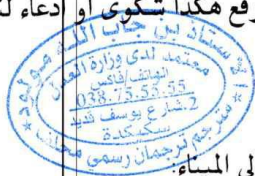 رفع هكذا بشكوى أو إدعاء لد
الأستاذ بن جاب الله مولود
معتمد لدى وزارة العدل
الهاتف/فاكس
038.75.55.15
2.شارع يوسف قديد
سكيكدة
مترجم ترجمان رسمي محلف
لى الميناء.